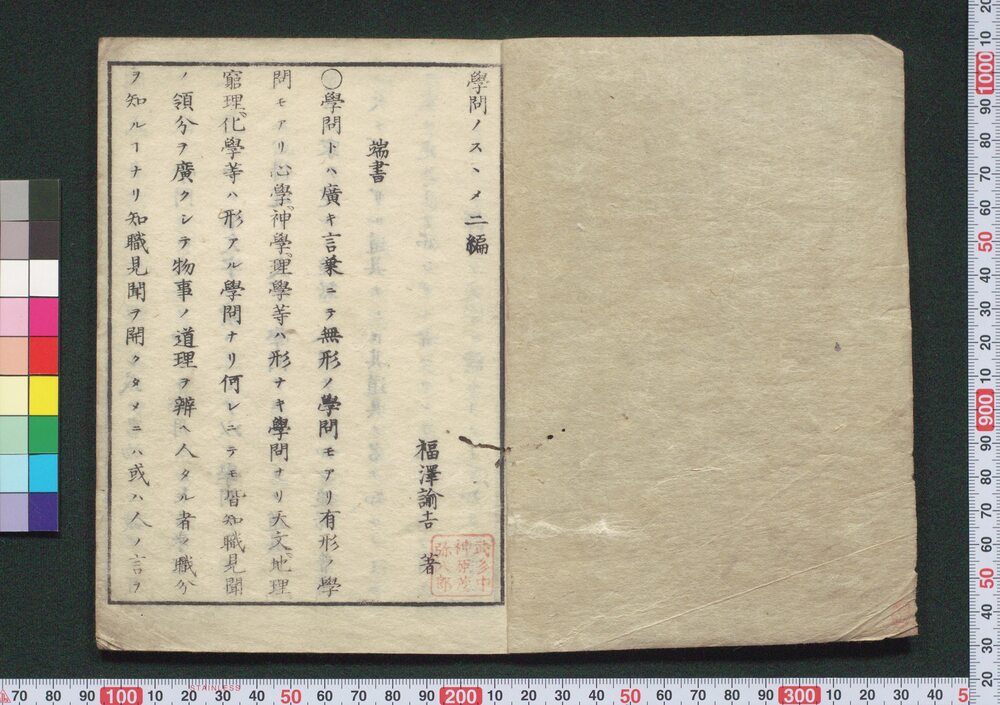 學問ノスヽメ二編
福澤諭吉 著
端書
〇學問トハ廣キ言葉ニテ無形ノ學問モアリ有形ノ學
問モアリ心學、神學、理學等ハ形ナキ學問ナリ天文、地理、
窮理、化學等ハ形アル學問ナリ何レニテモ皆知職見聞
ノ領分ヲ廣クシテ物事ノ道理ヲ辨ヘ人タル者ノ職分
ヲ知ルヿナリ知職見聞ヲ開クタメニハ或ハ人ノ言ヲ
20 10 1000 90 80 70 60 50 40 30 20 10 900 90 80 70 60 50 40 30 20
70 80 90 100 10 20 30 40 50 60 70 80 90 200 10 20 30 40 50 60 70 80 90 300 10 20 30 40 5
STAINLESS